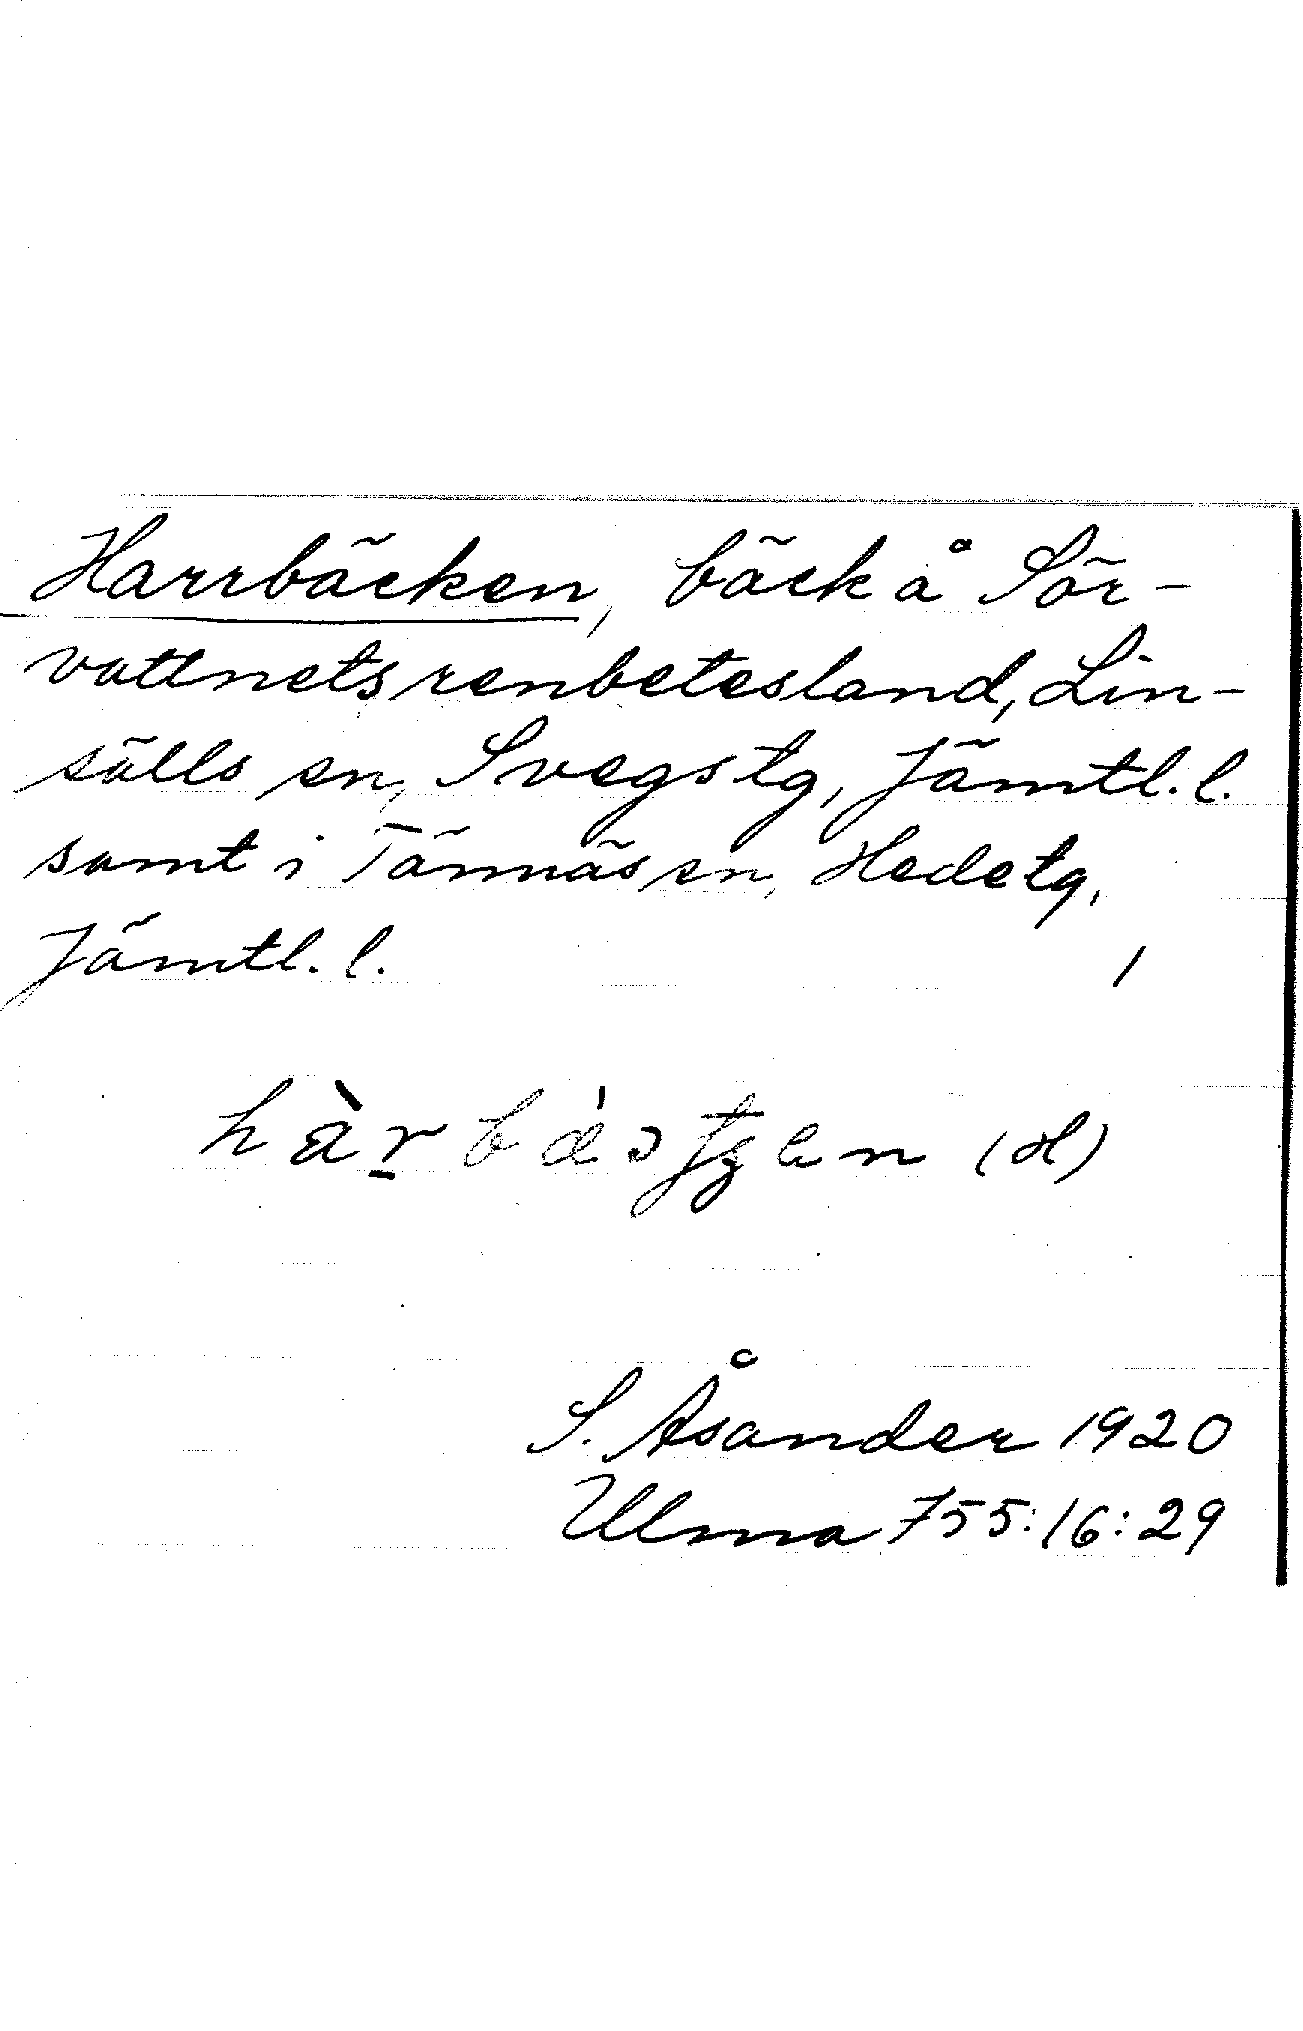 Harrbäcken, bäck å Sör-
vattnets renbetesland, Lin-
sälls sn, Svegs tg, Jämtl. l.
samt i Tännäs sn, Hede tg,
Jämtl. l.
(H)
S. Åsander 1920
Ulma 755:16:29